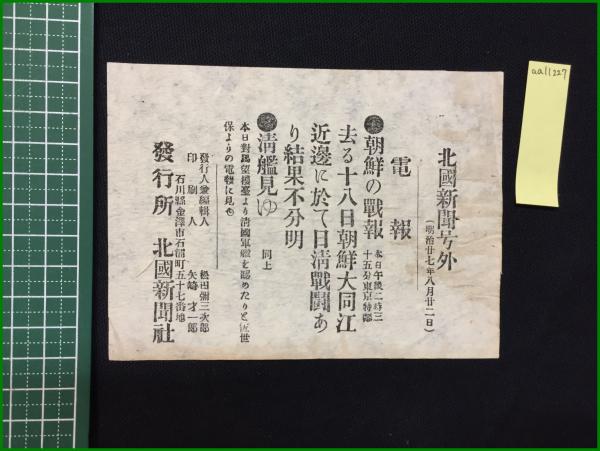 北國新聞号外
(明治廿七年八月廿二日)
電報
朝鮮の戰報 本日午後二時三十五分東京特發
去る十八日朝鮮大同江
近邊に於て日淸戰鬪あ
り結果不分明
淸艦見ゆ 同上
本日對馬望樓臺より淸國軍艦を認めたりと佐世
保よりの電報に見ゆ
發行人兼編輯人 松田彌三次郎
印刷人 矢崎才一郎
石川縣金澤市石浦町五十七番地
發行所 北國新聞社
aa11227